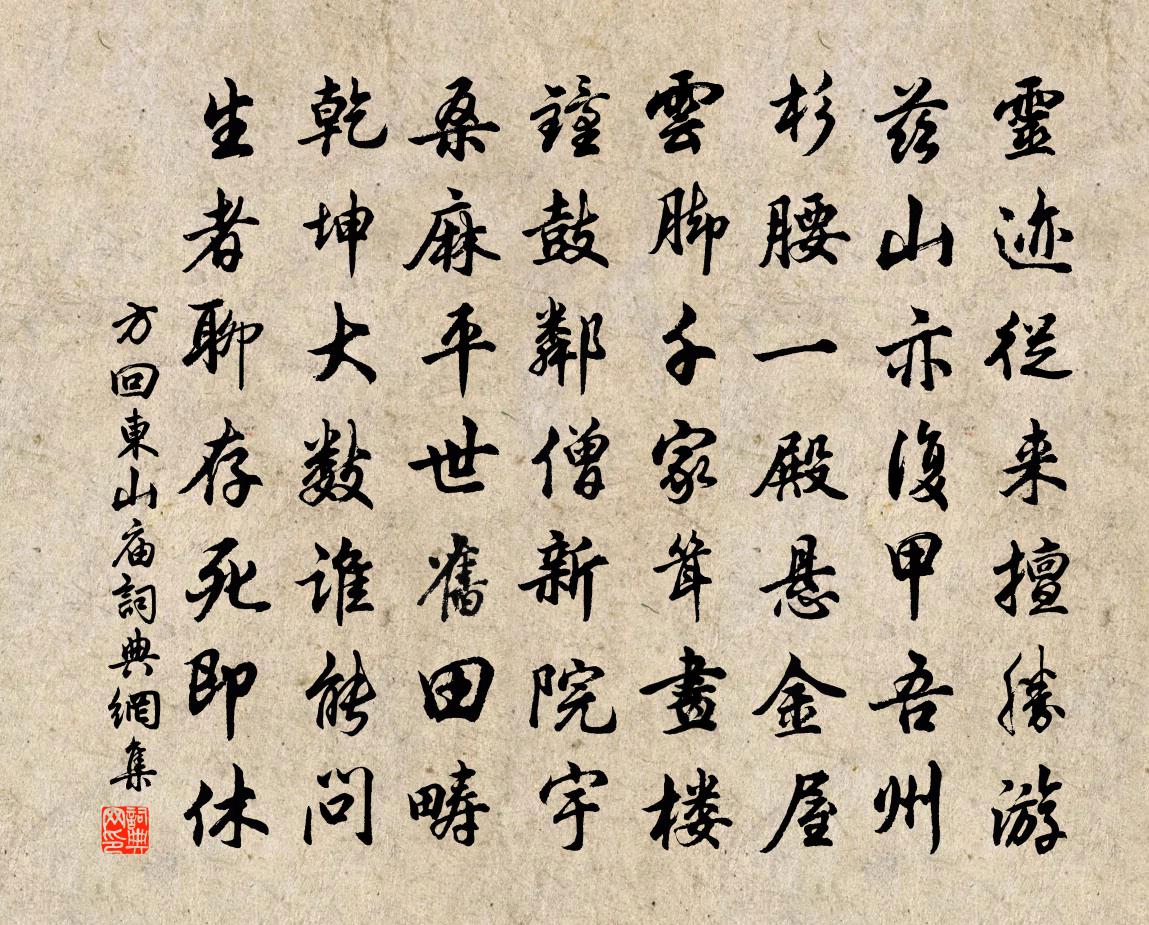 靈迹從来擅勝游
茲山亦復甲吾州
杉腰一殿悬金屋
雲脚千家聳畫楼
鐘鼓鄰僧新院宇
桑麻平世舊田疇
乾坤大数誰能問
生者聊存死即休
方回東山庙詞典網集
詞典网印